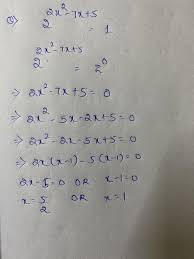 Q) 2^(2x²-7x+5) = 1
2^(2x²-7x+5) = 2⁰
⇒ 2x²-7x+5 = 0
⇒ 2x²-5x-2x+5 = 0
⇒ 2x²-2x-5x+5 = 0
⇒ 2x(x-1)-5(x-1) = 0
2x-5=0 OR x-1=0
x = 5/2 OR x = 1